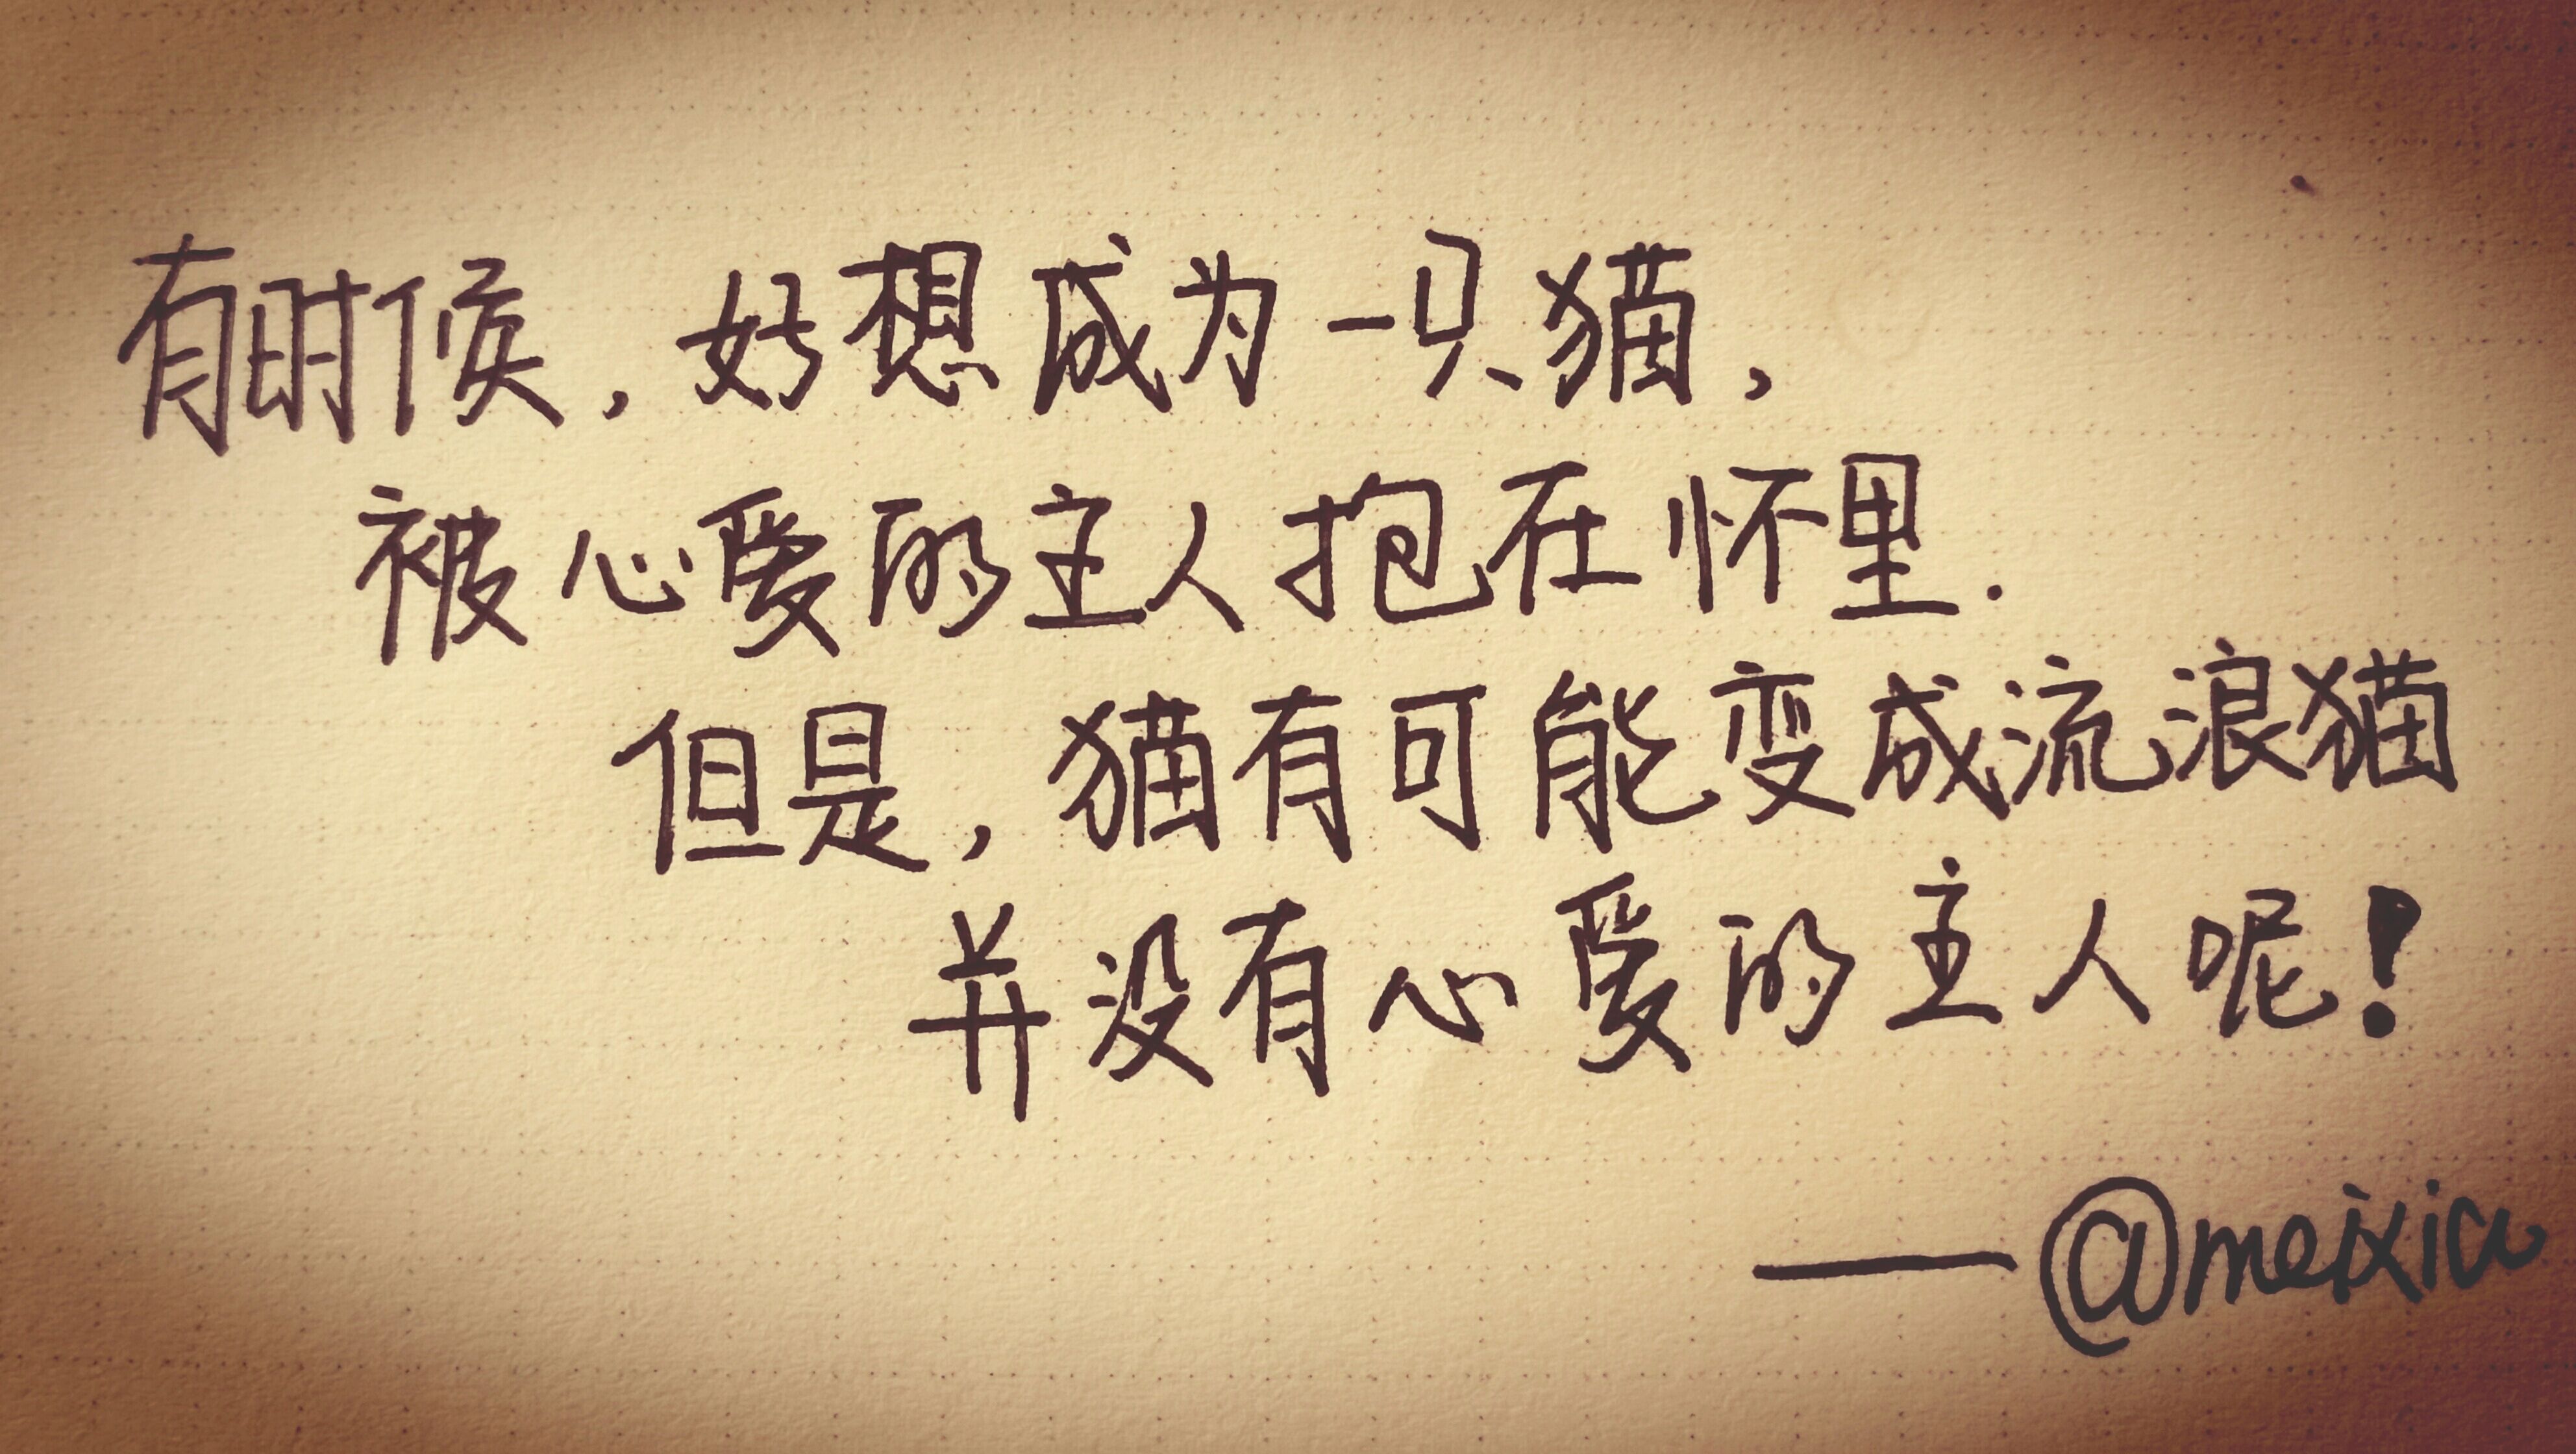 有时候，好想成为一只猫，
被心爱的主人抱在怀里.
但是，猫有可能变成流浪猫
并没有心爱的主人呢！
—@meixia